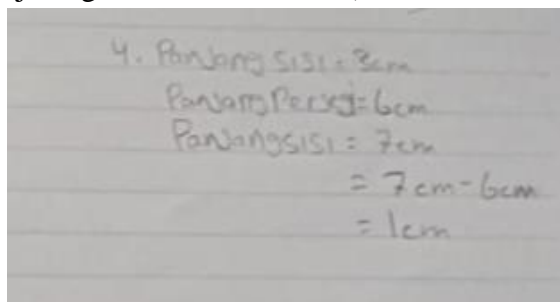 4. Panjang sisi = 3cm
Panjang Persegi = 6cm
Panjang sisi = 7cm
= 7cm - 6cm
= 1cm